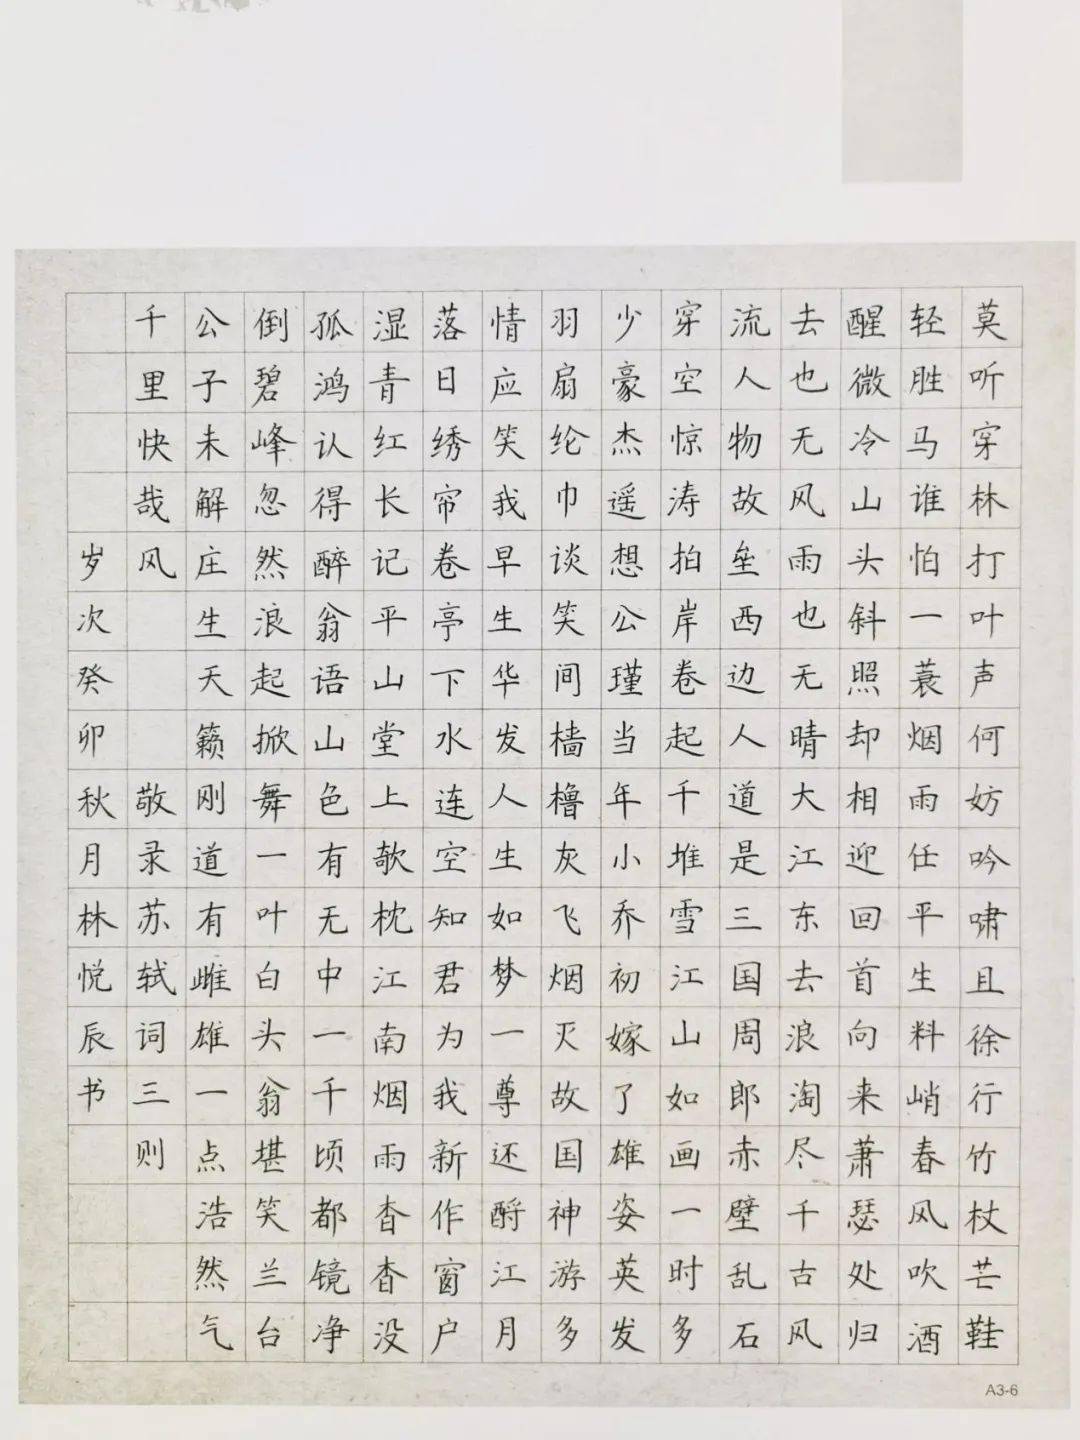 莫听穿林打叶声何妨吟啸且徐行竹杖芒鞋
轻胜马谁怕一蓑烟雨任平生料峭春风吹酒
醒微冷山头斜照却相迎回首向来萧瑟处归
去也无风雨也无晴大江东去浪淘尽千古风
流人物故垒西边人道是三国周郎赤壁乱石
穿空惊涛拍岸卷起千堆雪江山如画一时多
少豪杰遥想公瑾当年小乔初嫁了雄姿英发
羽扇纶巾谈笑间樯橹灰飞烟灭故国神游多
情应笑我早生华发人生如梦一尊还酹江月
落日绣帘卷亭下水连空知君为我新作窗户
湿青红长记平山堂上欹枕江南烟雨杳杳没
孤鸿认得醉翁语山色有无中一千顷都镜净
倒碧峰忽然浪起掀舞一叶白头翁堪笑兰台
公子未解庄生天籁刚道有雌雄一点浩然气
千里快哉风 敬录苏轼词三则
岁次癸卯秋月林悦辰书
A3-6